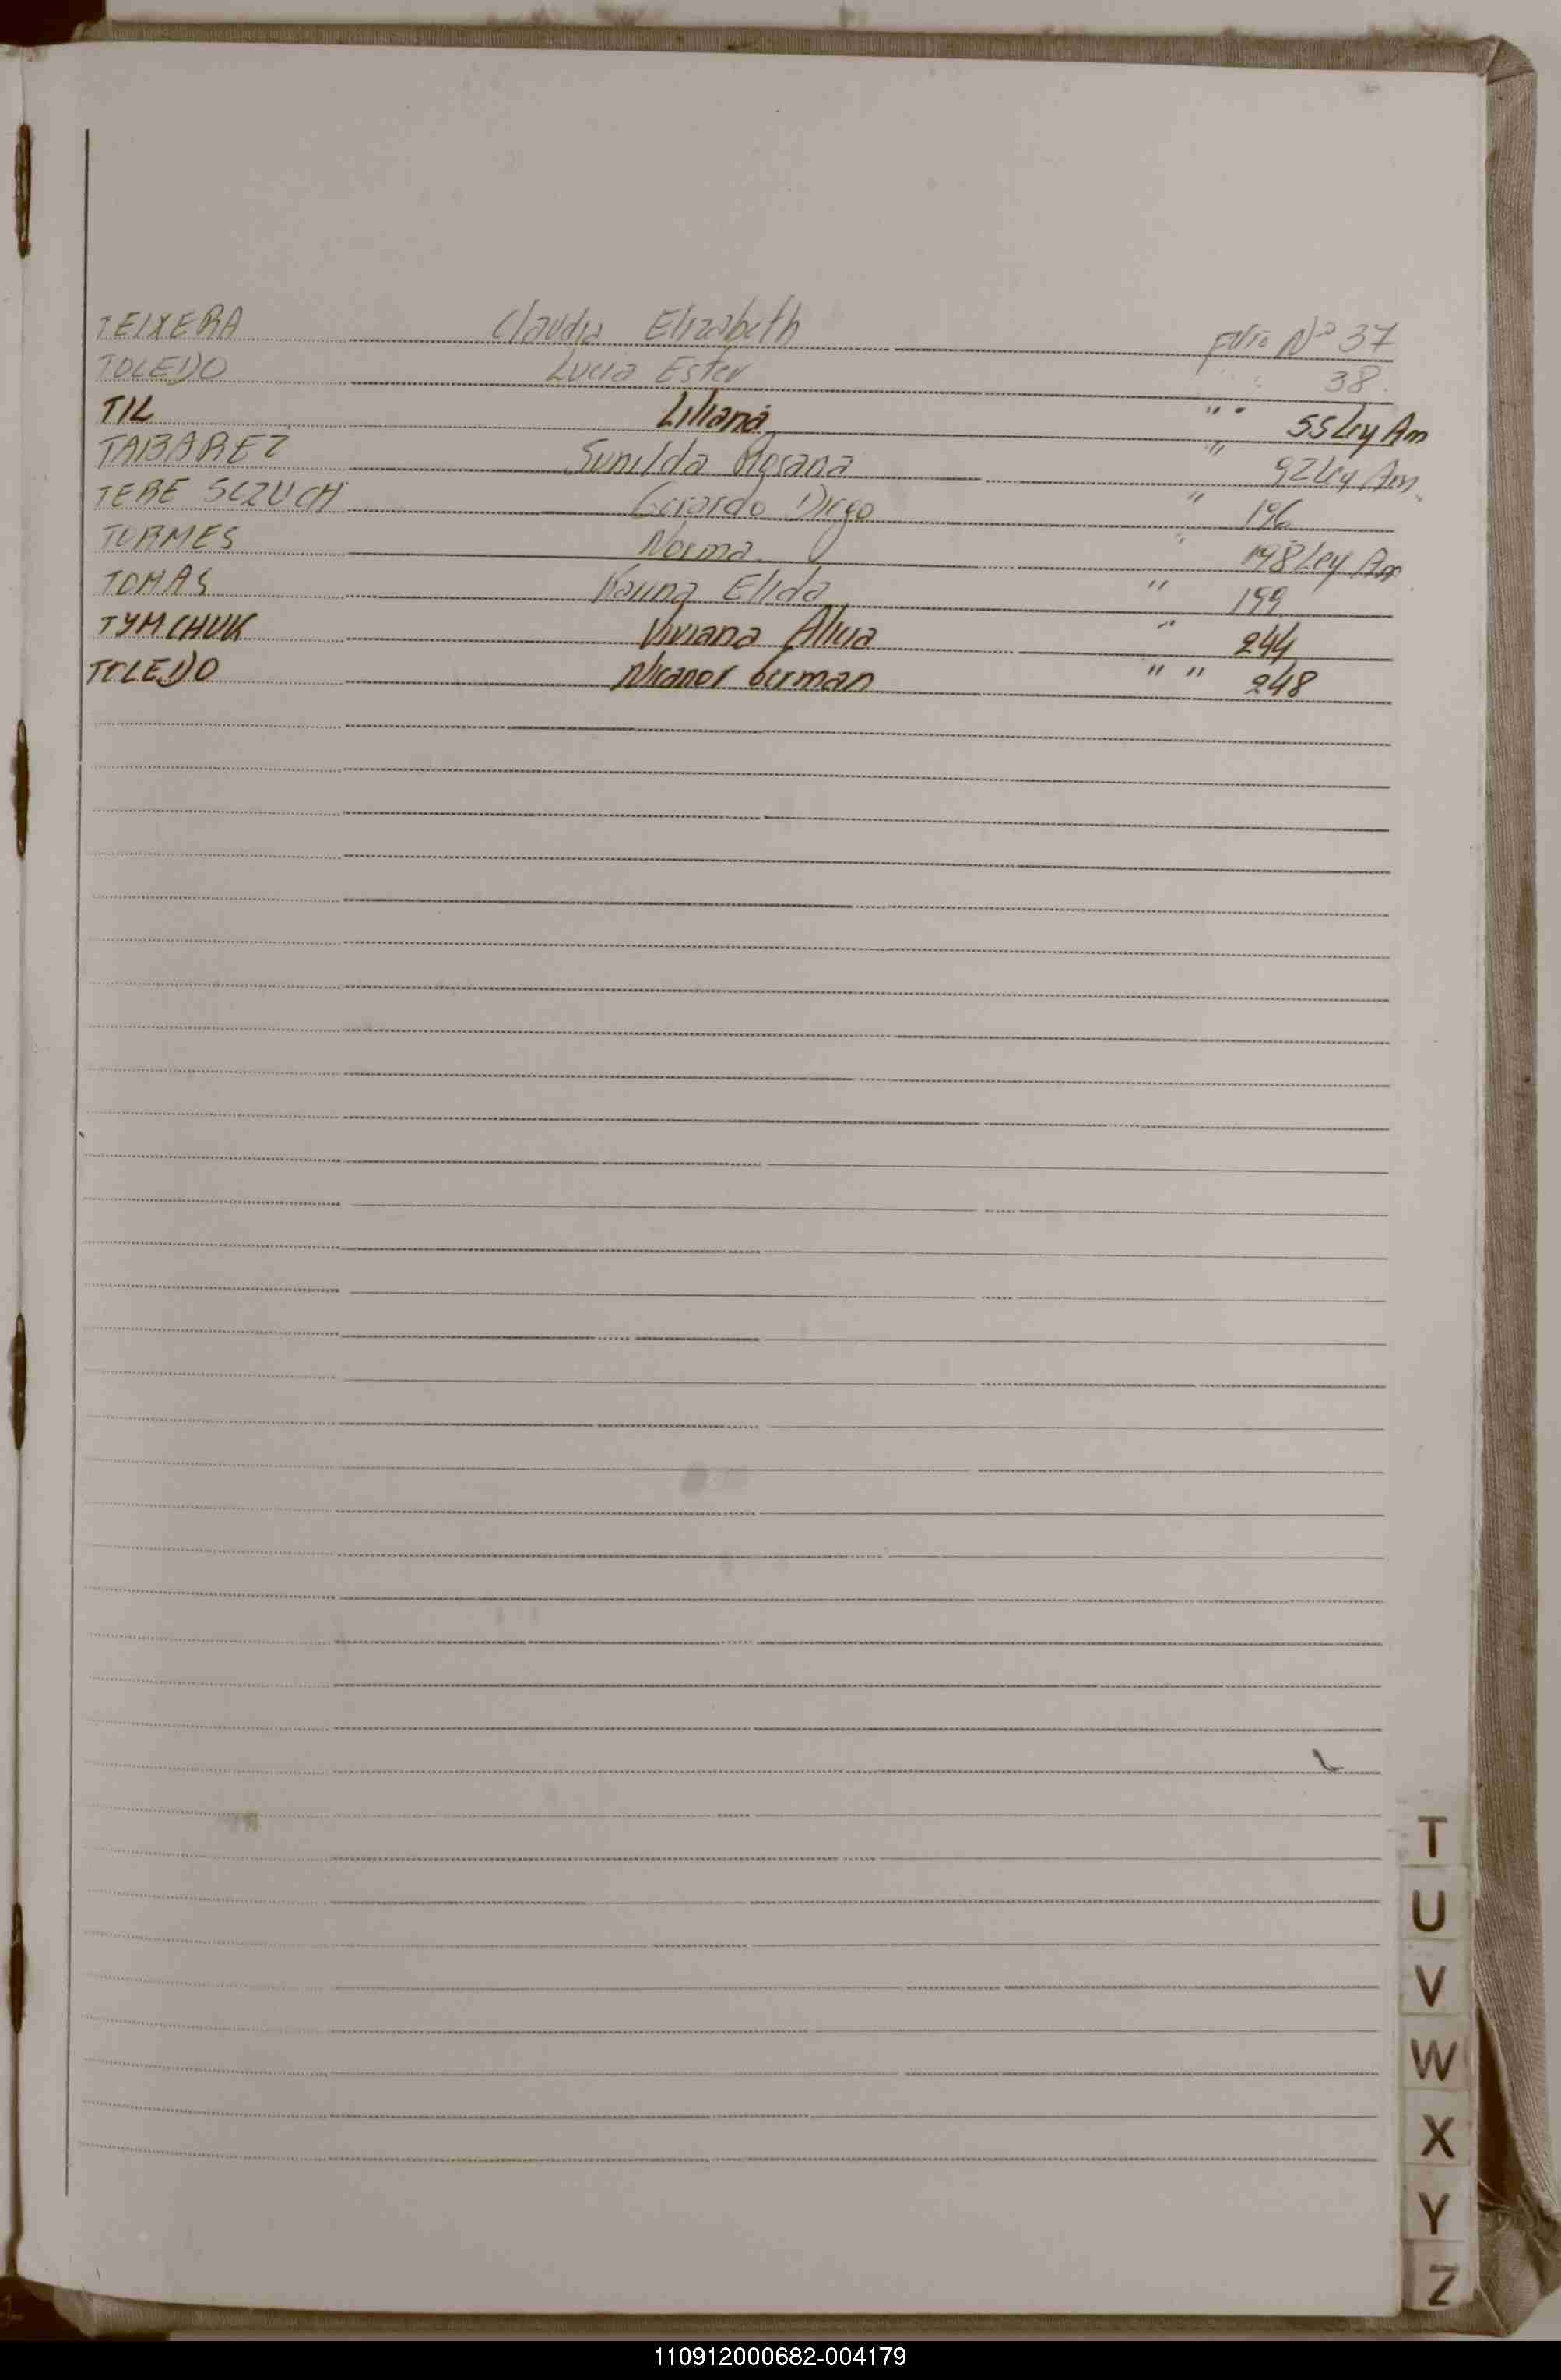 TEIXERA Claudia Elizabeth folio Nº 37
TOLEDO Lucia Ester " " 38
TIL Liliana " " 55 Ley Am
TABAREZ Sunilda Rosana " 92 Ley Am
TERE SCZUCH Gerardo Diego " 196
TORMES Norma " 198 Ley Am
TOMAS Elida " 199
TYMCHUK Viviana Alicia " 244
TOLEDO Nicanor German " " 248
T
U
V
W
X
Y
Z
110912000682-004179